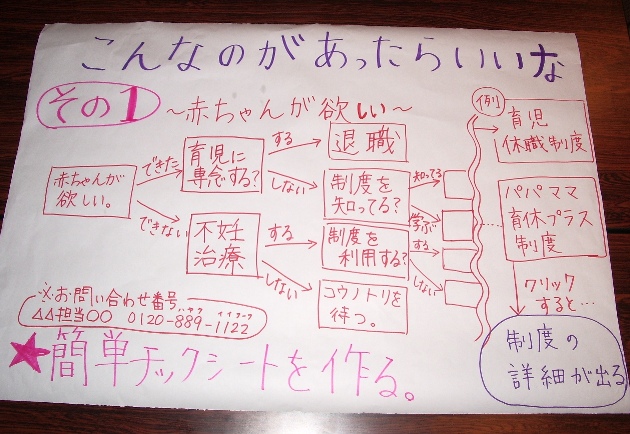 こんなのがあったらいいな
その1
～赤ちゃんが欲しい～
赤ちゃんが
欲しい。
できた
できない
育児に
専念する?
する
しない
退職
制度を
知ってる?
知ってる
学ぶ
不妊
治療
する
しない
制度を
利用する?
する
しない
コウノトリを
待つ。
例
育児
休職制度
パパママ
育休プラス
制度
クリック
すると…
制度の
詳細が出る
※お問い合わせ番号
ハヤク イイフーフ
△△担当〇〇 0120-889-1122
★簡単チックシートを作る。